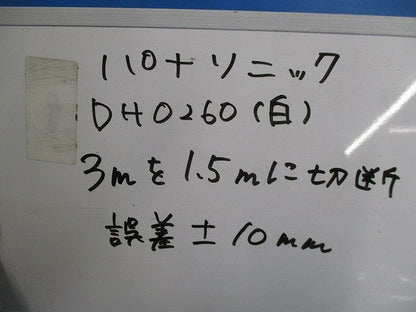 パナソニック
DH0260(白)
3mを1.5mに切断
誤差±10mm